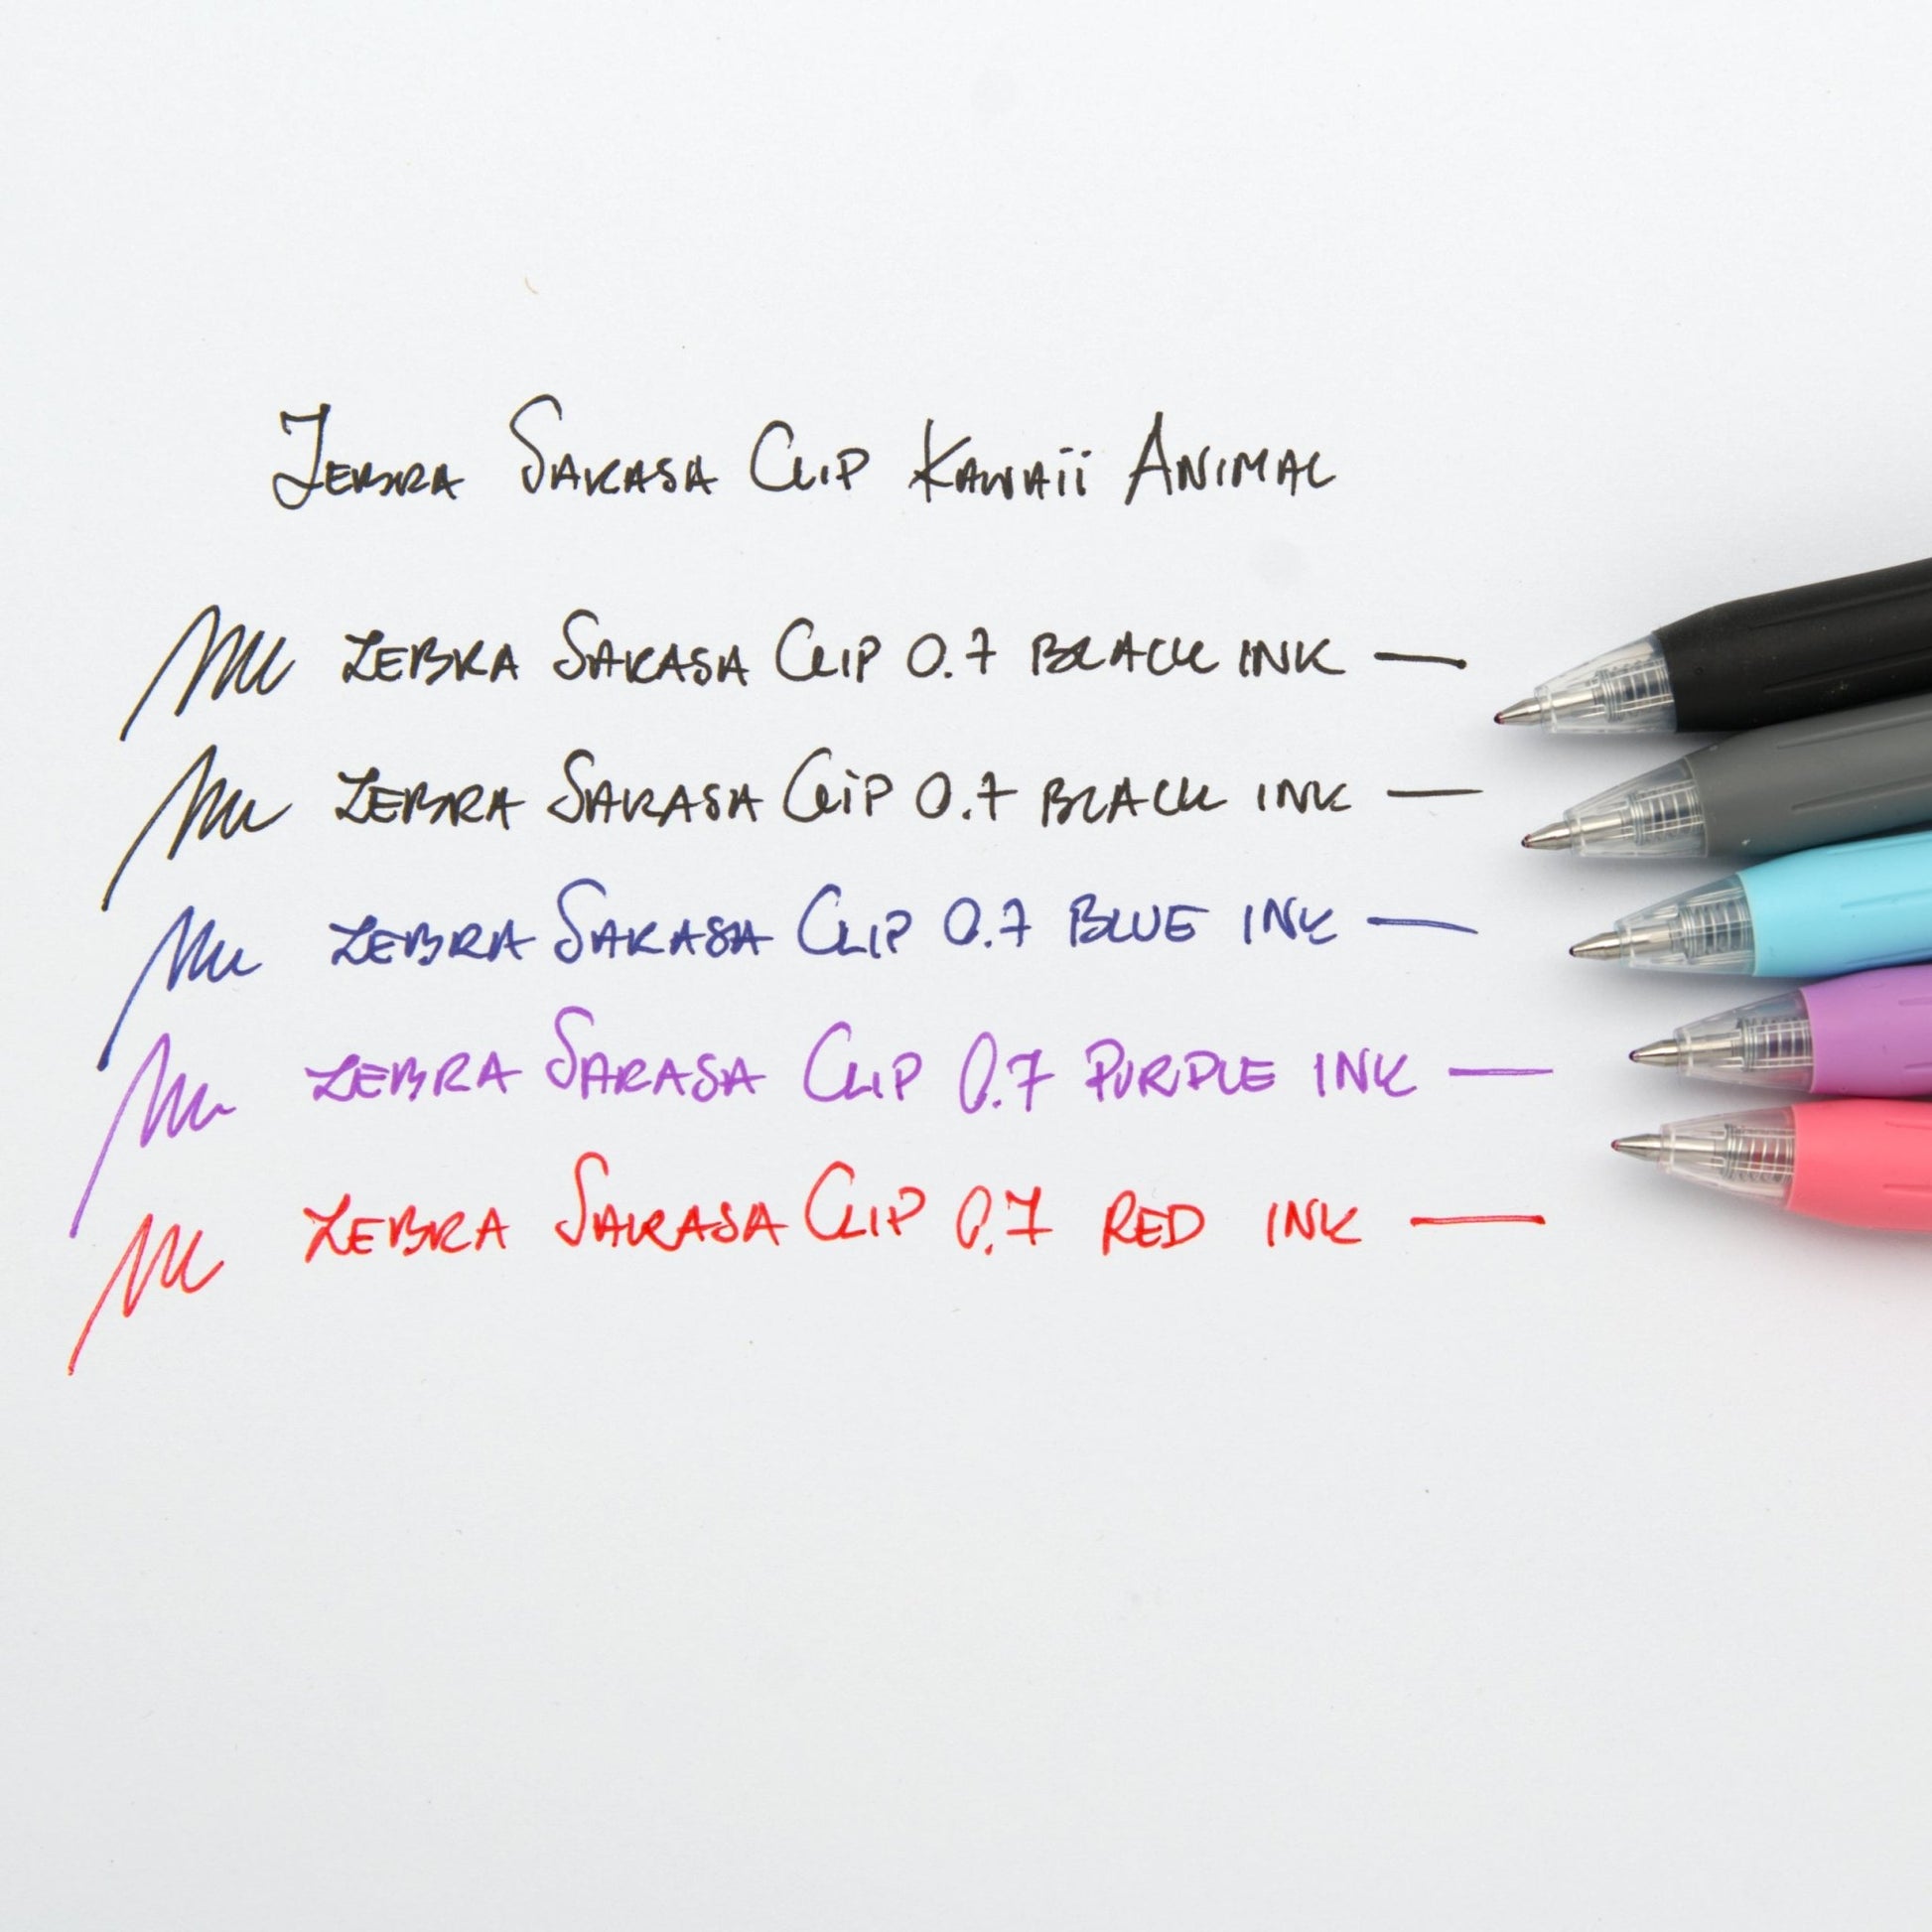 Zebra Sarasa Clip Kawaii Animal
Zebra Sarasa Clip 0.7 Black Ink —
Zebra Sarasa Clip 0.7 Black Ink —
Zebra Sarasa Clip 0.7 Blue Ink —
Zebra Sarasa Clip 0.7 Purple Ink —
Zebra Sarasa Clip 0.7 Red Ink —